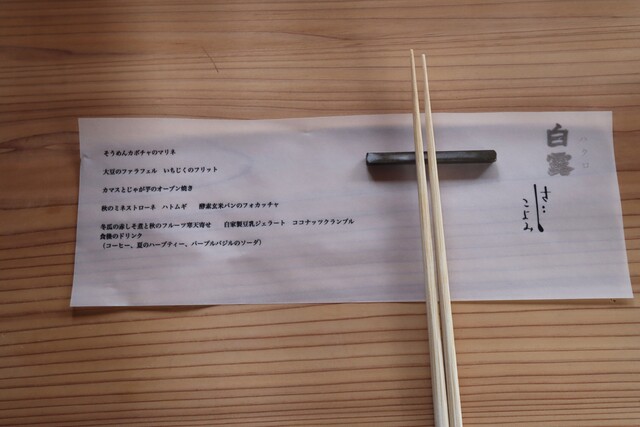 そうめんカボチャのマリネ
大豆のファラフェル いちじくのフリット
カマスとじゃが芋のオーブン焼き
秋のミネストローネ ハトムギ 酵素玄米パンのフォカッチャ
冬瓜の赤しそ煮と秋のフルーツ寒天寄せ 自家製豆乳ジェラート ココナッツクランブル
食後のドリンク
（コーヒー、夏のハーブティー、パープルバジルのソーダ）
白露
ハクロ